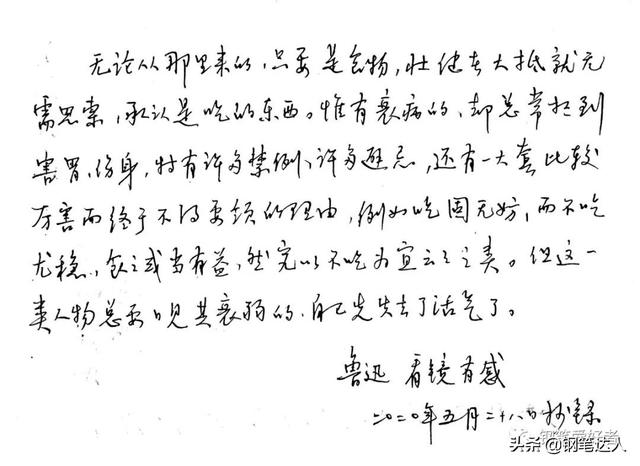 无论从那里来的,只要是食物,壮健者大抵就无
需思索,承认是吃的东西。惟有衰病的,却总常想到
害胃、伤身,特有许多禁例,许多避忌,还有一大套比较
厉害而终于不得要领的理由,例如吃固无妨,而不吃
尤稳,食之或当有益,然究以不吃为宜云云之类。但这一
类人物总要日见其衰弱的,自己先失去了活气了。
鲁迅 看镜有感
二〇二〇年五月二十八日抄录
钢笔爱好者
头条@钢笔达人